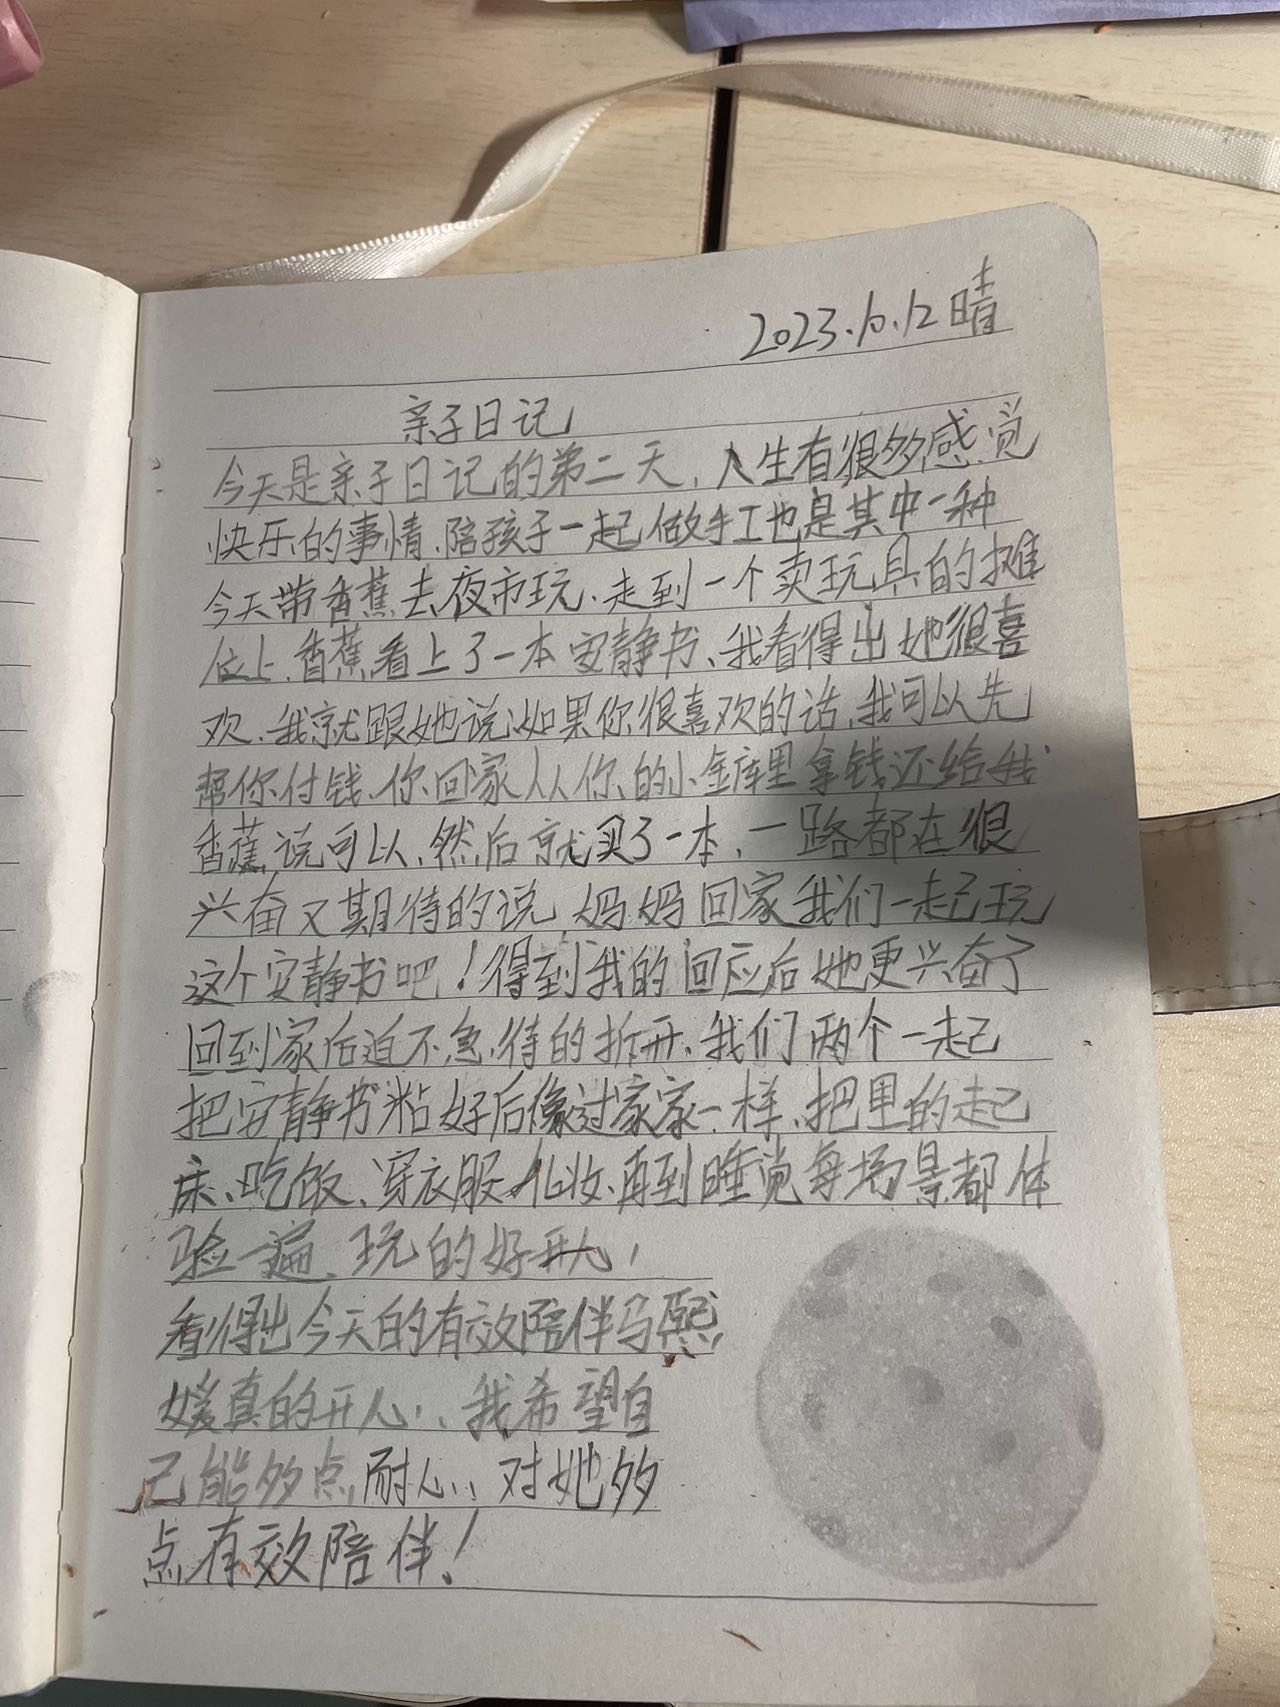 2023.10.12 晴
亲子日记
今天是亲子日记的第二天，人生有很多感觉
快乐的事情、陪孩子一起做手工也是其中一种
今天带香蕉去夜市玩、走到一个卖玩具的摊
位上、香蕉看上了一本安静书、我看得出她很喜
欢、我就跟她说如果你很喜欢的话、我可以先
帮你付钱、你回家从你的小金库里拿钱还给我
香蕉说可以、然后就买了一本、一路都在很
兴奋又期待的说 妈妈回家我们一起玩
这个安静书吧！得到我的回应后她更兴奋了
回到家后迫不急待的拆开、我们两个一起
把安静书粘好后像过家家一样、把里的起
床、吃饭、穿衣服、化妆、再到睡觉每场景都体
验一遍、玩的好开心，
看得出今天的有效陪伴马熙
媛真的开心、我希望自
己能多点耐心、对她多
点有效陪伴！